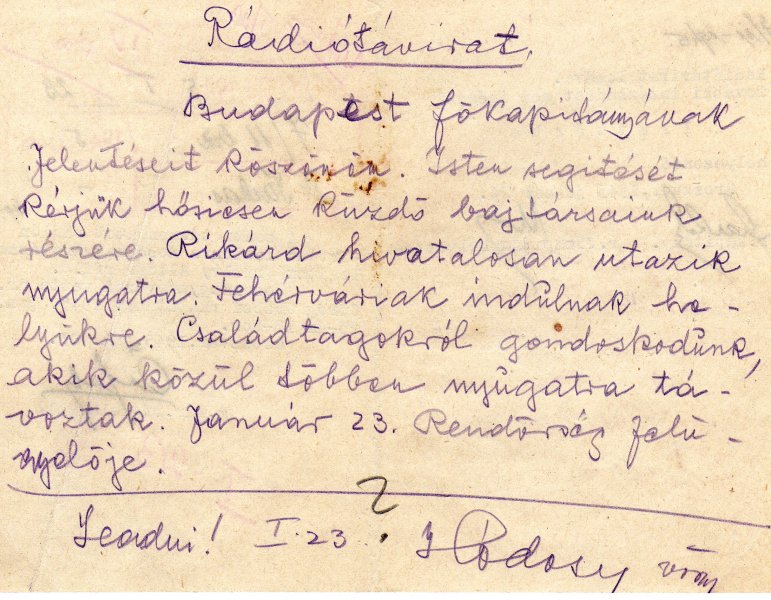 Rádiótávirat.
Budapest főkapitányának
Jelentéseit köszönöm. Isten segitését
kérjük hősiesen küzdő bajtársaink
részére. Rikárd hivatalosan utazik
nyugatra. Fehérváriak indúlnak he-
lyükre. Családtagokról gondoskodúnk,
akik közül többen nyúgatra tá-
voztak. Január 23. Rendőrség felü-
gyelője.
Leadni! I.23